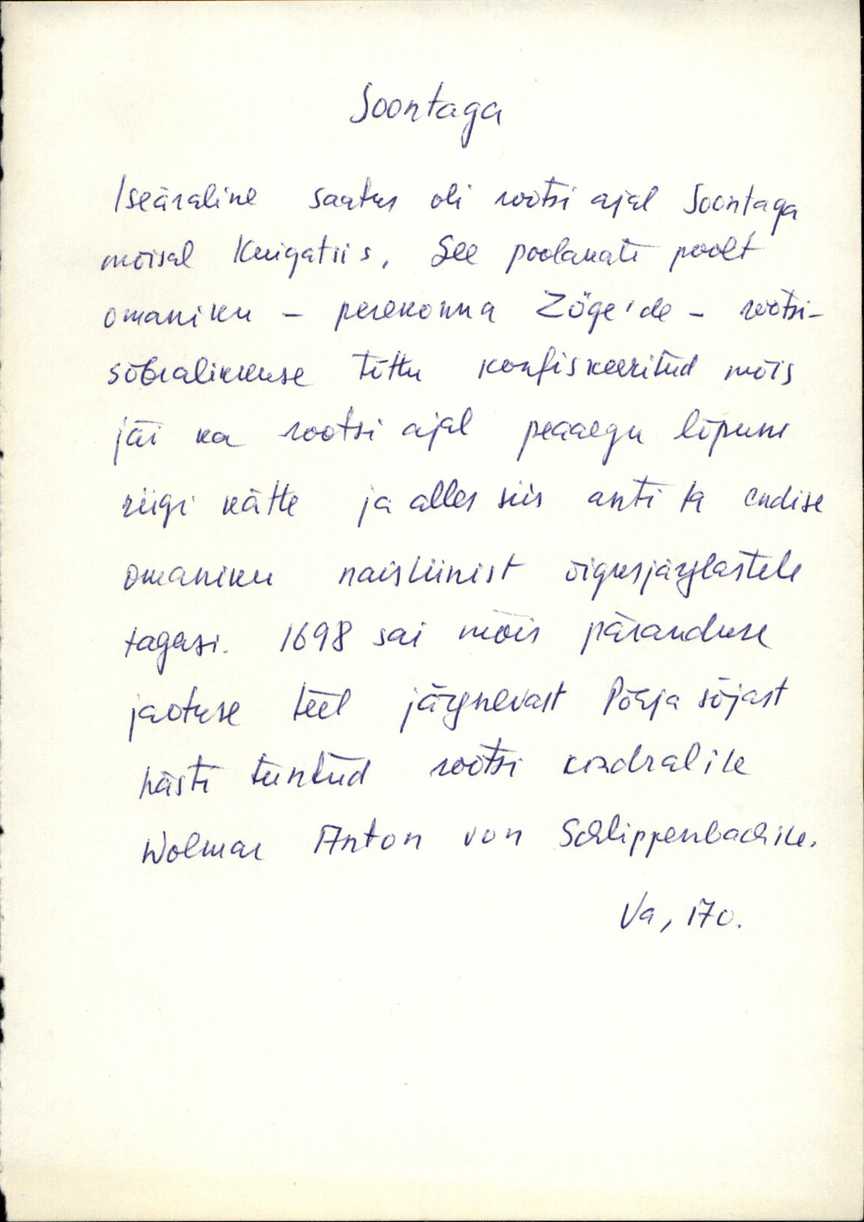 Soontaga
Iseäraline saatus oli rootsi ajal Soontaga
mõisal Kuigatsis. See poolakate poolt
omaniku – perekonna Zöge'de – rootsi-
sõbralikkuse tõttu konfiskeeritud mõis
jäi ka rootsi ajal peaaegu lõpuni
riigi kätte ja alles siis anti ta endise
omaniku naisliinist õigusjärglastele
tagasi. 1698 sai mõis päranduse
jaotuse teel järgnevast Põhja sõjast
hästi tuntud rootsi kindralile
Wolmar Anton von Schlippenbachile.
Va, 170.